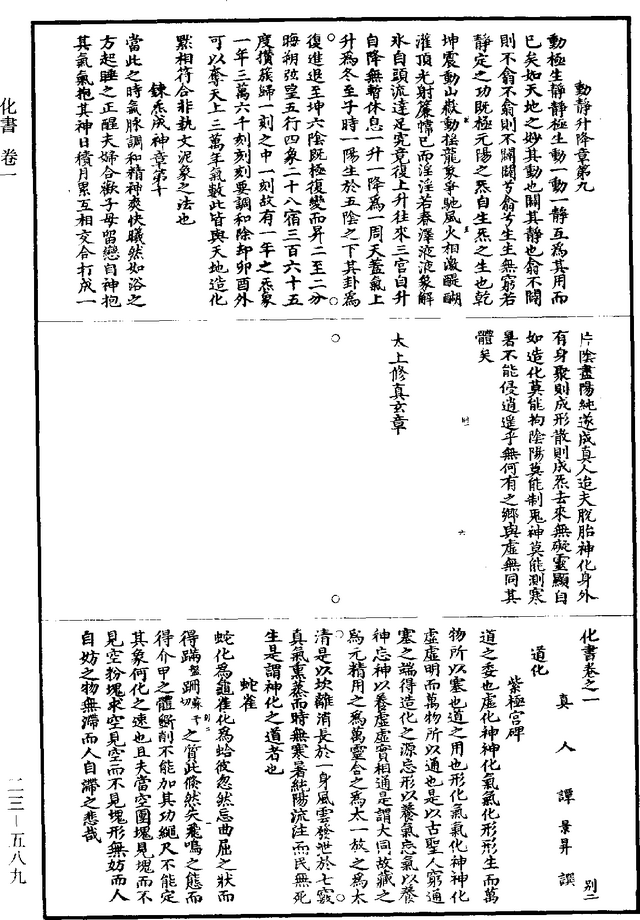 化書 卷一
動靜升降章第九
動極生靜靜極生動一動一靜互為其用而
已矣如天地之妙其動也闢其靜也翕不闢
則不翕不翕則不闢闢兮翕兮生生無窮若
靜定之功既極元陽之炁自生炁之生也乾
坤震動山嶽動搖龍象爭馳風火相激醍醐
灌頂光射簾幃已而淫淫若春澤液液象解
氷自頭流達足究竟復上升往來三宮自升
自降無暫休息一升一降為一周天蓋氣上
升為冬至子時一陽生於五陰之下其卦為
復進退至坤六陰既極復變而昇二至二分
晦朔弦望五行四象二十八宿三百六十五
度攢簇歸一刻之中一刻故有一年之炁象
一年三萬六千刻刻刻要調和除却卯酉外
可以奪天上三萬年氣數此皆與天地造化
黙相符合非執文泥象之法也
鍊炁成神章第十
當此之時氣脉調和精神爽快曦然如浴之
方起睡之正醒夫婦合歡子母留戀自神抱
其氣氣抱其神日積月累互相交合打成一
片陰盡陽純遂成真人迨夫脫胎神化身外
有身聚則成形散則成炁去來無礙靈顯自
如造化莫能拘陰陽莫能制鬼神莫能測寒
暑不能侵逍遥乎無何有之鄉與虛無同其
體矣
太上修真玄章
化書卷之一 別二
真人譚景昇譔
道化
紫極宮碑
道之委也虛化神神化氣氣化形形生而萬
物所以塞也道之用也形化氣氣化神神化
虛虛明而萬物所以通也是以古聖人窮通
塞之端得造化之源忘形以養氣忘氣以養
神忘神以養虛虛實相通是謂大同故藏之
為元精用之為萬靈合之為太一放之為太
清是以坎離消長於一身風雲發泄於七竅
真氣熏蒸而時無寒暑純陽流注而民無死
生是謂神化之道者也
蛇雀
蛇化為龜雀化為蛤彼忽然忘曲屈之狀而
得蹣跚之質此倏然失飛鳴之態而
得介甲之體斵削不能加其功繩尺不能定
其象何化之速也且夫當空團塊見塊而不
見空粉塊求空見空而不見塊形無妨而人
自妨之物無滯而人自滯之悲哉
二三－五八九